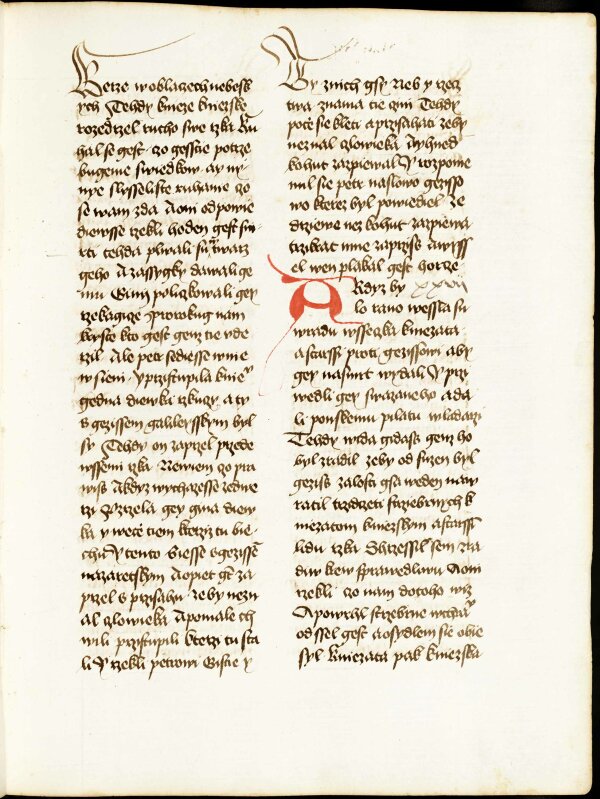 Berze w oblaczech nebesk
ych Tehdy knieze kniezske
rozedrzel rucho swe rzka Ru
hal se gest czo gesstie potrze
bugeme swiedkow ay ny
nye slysseliste ruhanie czo
se wam zda A oni odpowie
diewsse rzekli hoden gest smr
rti tehda plwali su w twarz
geho A zassygky dawali ge
mu Gini policzkowali gey
rzekagicze Prorokug nam
kryste kto gest genz tie vde
rzil Ale petr sediesse wnie
w sieni y przistupila knie
gedna diewka rzkuczy a ty
s gezissem galileyskym byl
sy Tehdy on zaprzel przede
wssemi rzka Newiem czo pra
wiss A kdyz wychazesse ze dwe
rzi Vzrzela gey gina diew
ka y wece tiem kterziz tu bie
chu Y tento biesse s gezissem
nazaretskym A opiet gt za
przel s przisahu ze by nezn
al czlowieka A pomale ch
wili przistupili kterzi tu sta
li Y rzekli petrowi Gistie y
Ty znich gsy Neb y rzecz
twa znama tie czini Tehdy
poczie sie kleti a przisahati zeby
neznal czlowieka A yhned
kohut zazpiewal Y wzpome
nul sie petr na slowo gezisso
wo kterez byl powiediel ze
drziewe nez kohut zazpiewa
trzikrat mne zaprziss A wyss
el wen plakal gest horzce
A Kdyz by xxvii
lo rano wessla su
w radu wsseczka kniezata
a starssi proti gezissowi aby
gey na smrt wydali Y przi
wedli gey swazaneho a da
li ponskemu pilatu wladarzi
Tehdy wida gidass genz ho
byl zradil zeby odsuzen byl
geziss zalosti gsa weden naw
ratil trzidczeti strziebrnych k
niezatom kniezskym a starssim
lidu rzka Shrzessil sem zra
diw krew sprawedliwu A oni
rzekli czo nam do toho wiz
A powrhl strzebrne w chramu
odssel gest a osydlem sie obie
syl Kniezata pak kniezska